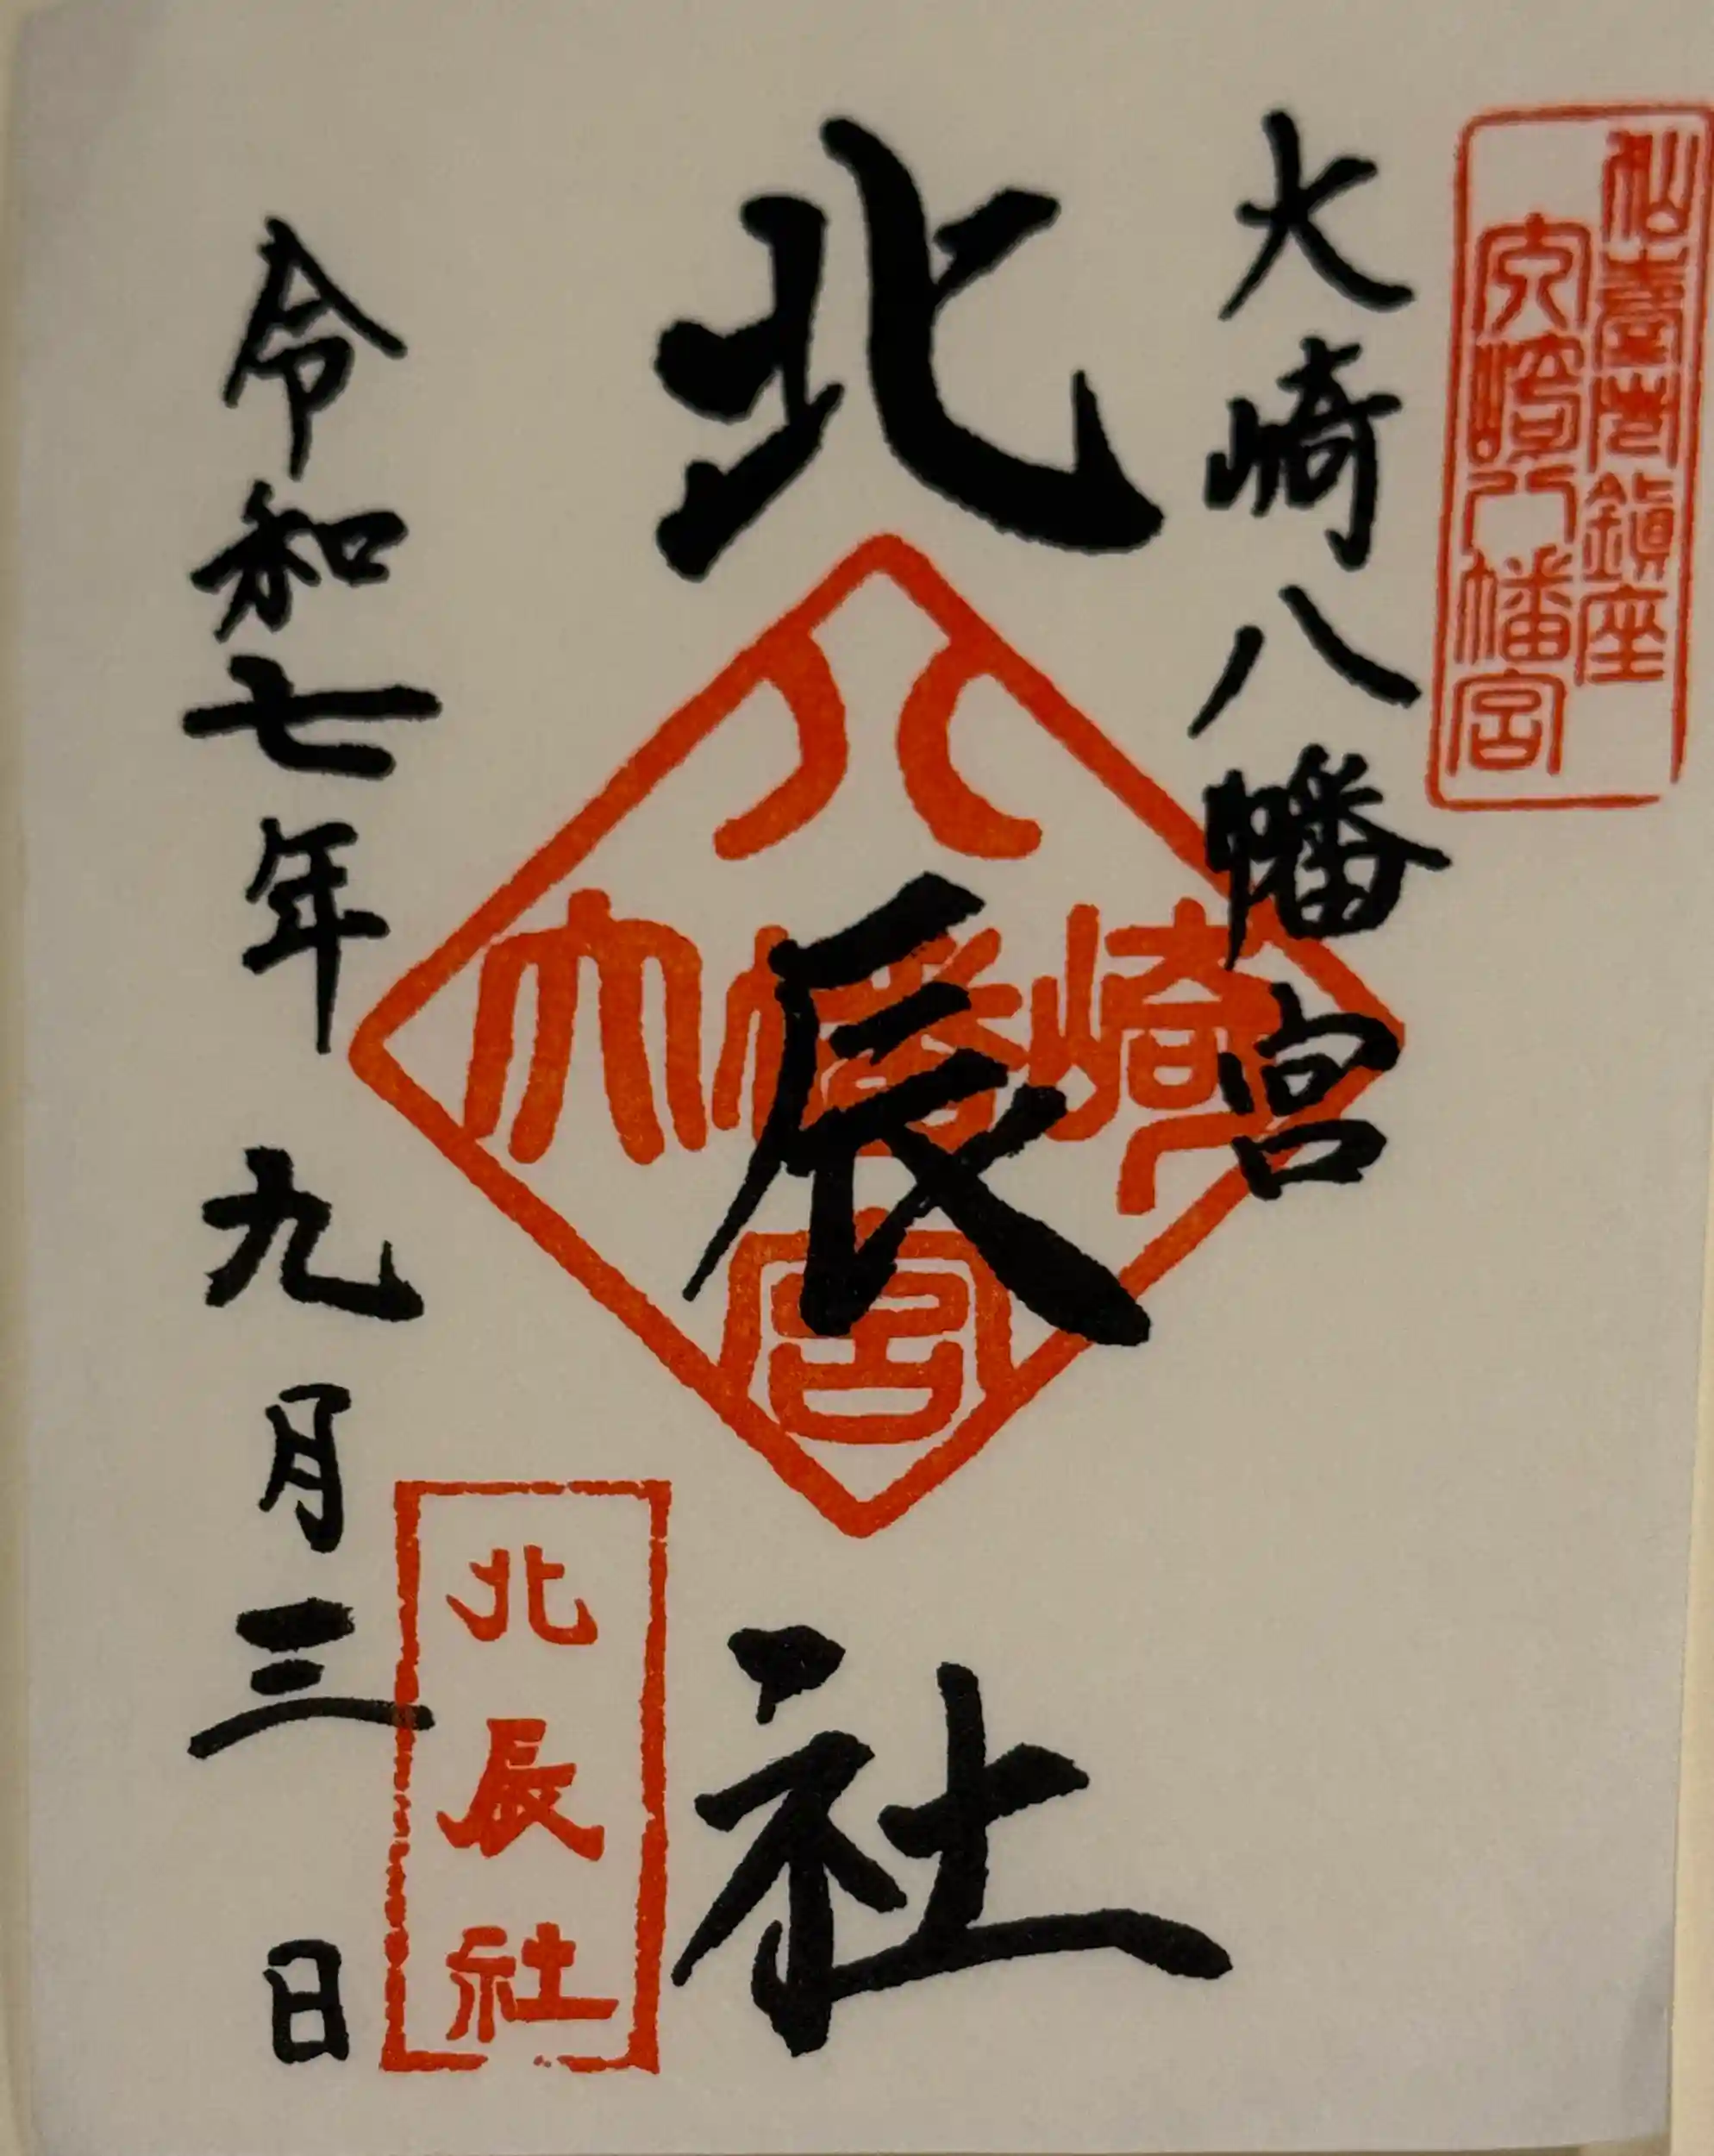 仙臺總鎮座
大崎八幡宮
大崎八幡宮
北辰社
八幡宮
大崎
北辰社
令和七年 九月三日